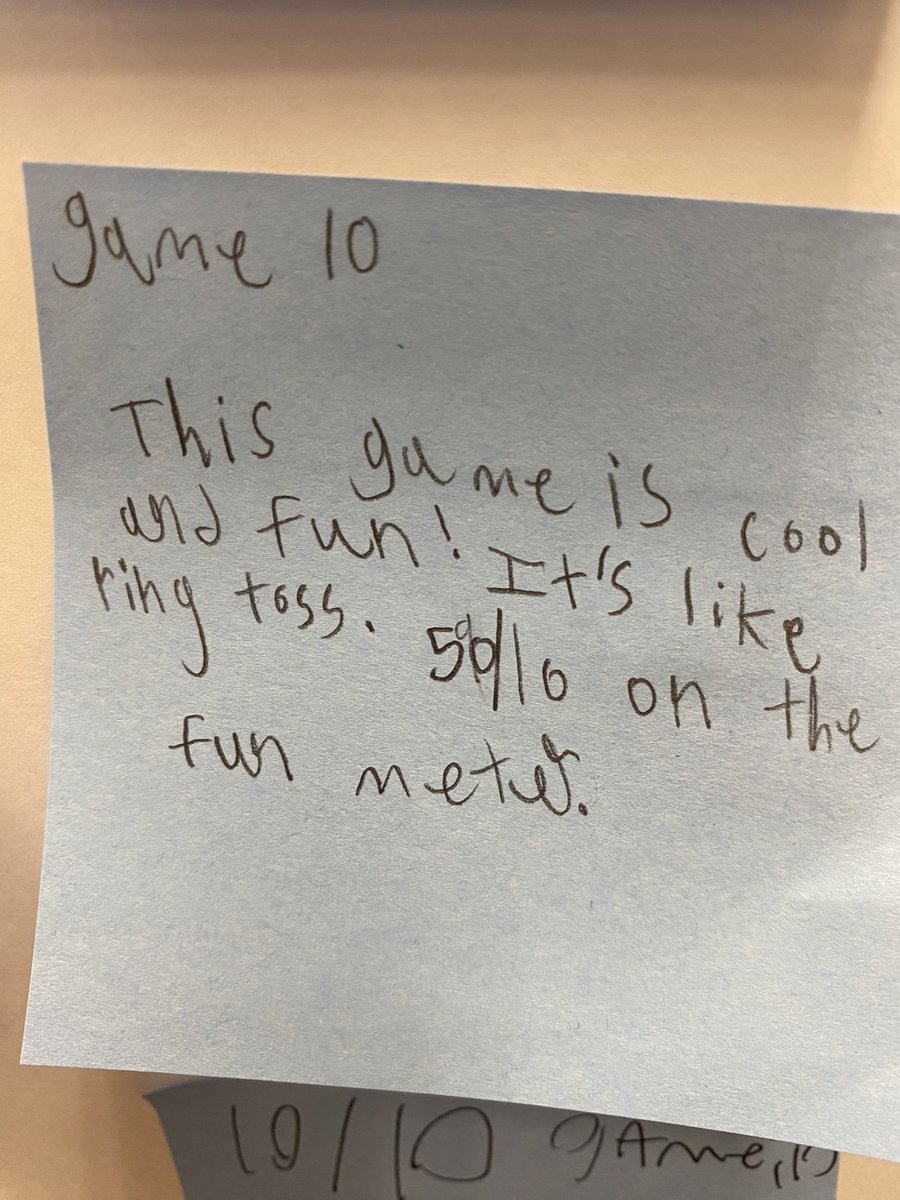 game 10
This game is cool
and fun! It's like
ring toss. 50/10 on the
fun meter.
10/10 game,